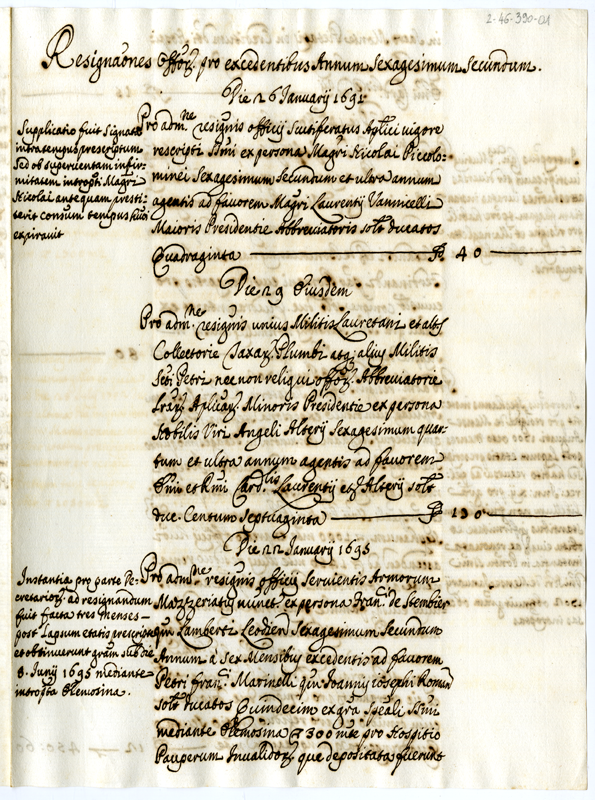 2-46-390-01
Resignãones Offõr. pro excedentibus Annum Sexagesimum Secundum.
Die 26 January 1691
Supplicatio fuit Signata
infra tempus prescriptum
Sed ob supervientam infir-
mitatem introptã Magri
Nicolai antequam presti-
terit consum tempus
expiravit
Pro adm.ne resignis officij Scutiferatus Aplici vigore
rescripti Smi ex persona Magri Nicolai Piccolo-
minei Sexagesimum Secundum et ultra annum
agentis ad favorem Magri Laurentij Vannicelli
Maioris Presidentie Abbreviatoris solt ducatos
Quadraginta 40
Die 29 Eiusdem
Pro adm.ne resignis unius Militis Lauretani et altş
Collectorie Taxar. Plumbi atq. alius Militis
Scti Petri nec non reliqui offõr. Abbreviatorie
Lrar. Aplicar. Minoris Presidentie ex persona
Nobilis Viri Angeli Alterij Sexagesimum quar-
tum et ultra annum agentis ad favorem
Emi et Rmi Card.lis Laurentij etz Alterij solt
duc. Centum Septuaginta 170
Die 22 January 1695
Instantia pro parte Se-
cretarior. ad resignandum
fuit facta tres menses
post Lapsum etatis prescripte
et obtinuerunt gram sub die
8. Junij 1695 mediante
introptã Elemosina.
Pro adm.ne resignis officij Servientis Armorum
Mazzeriatus nunct. ex persona Fran.ci de Stembier
qm Lambertz Leodien Sexagesimum Secundum
Annum à Sex Mensibus excedentis ad favorem
Petri Fran.ci Marinelli qm Joannij iosephi Roman
solt ducatos Quindecim ex grã Speali Smi
mediante Elemosina 300 mte pro Hospitio
Pauperum Invalidor. que depositata fuerunt